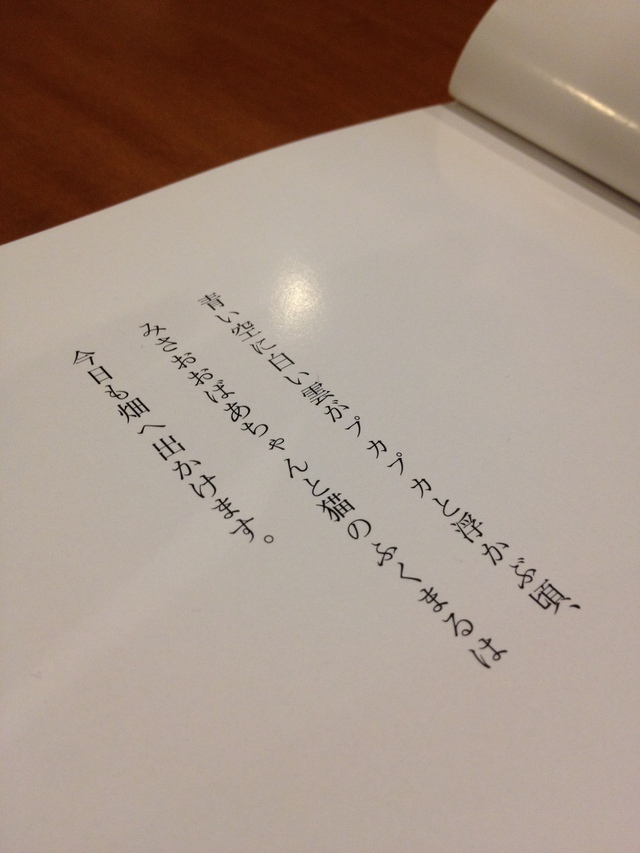 青い空に白い雲がプカプカと浮かぶ頃、
みさおおばあちゃんと猫のふくまるは
今日も畑へ出かけます。